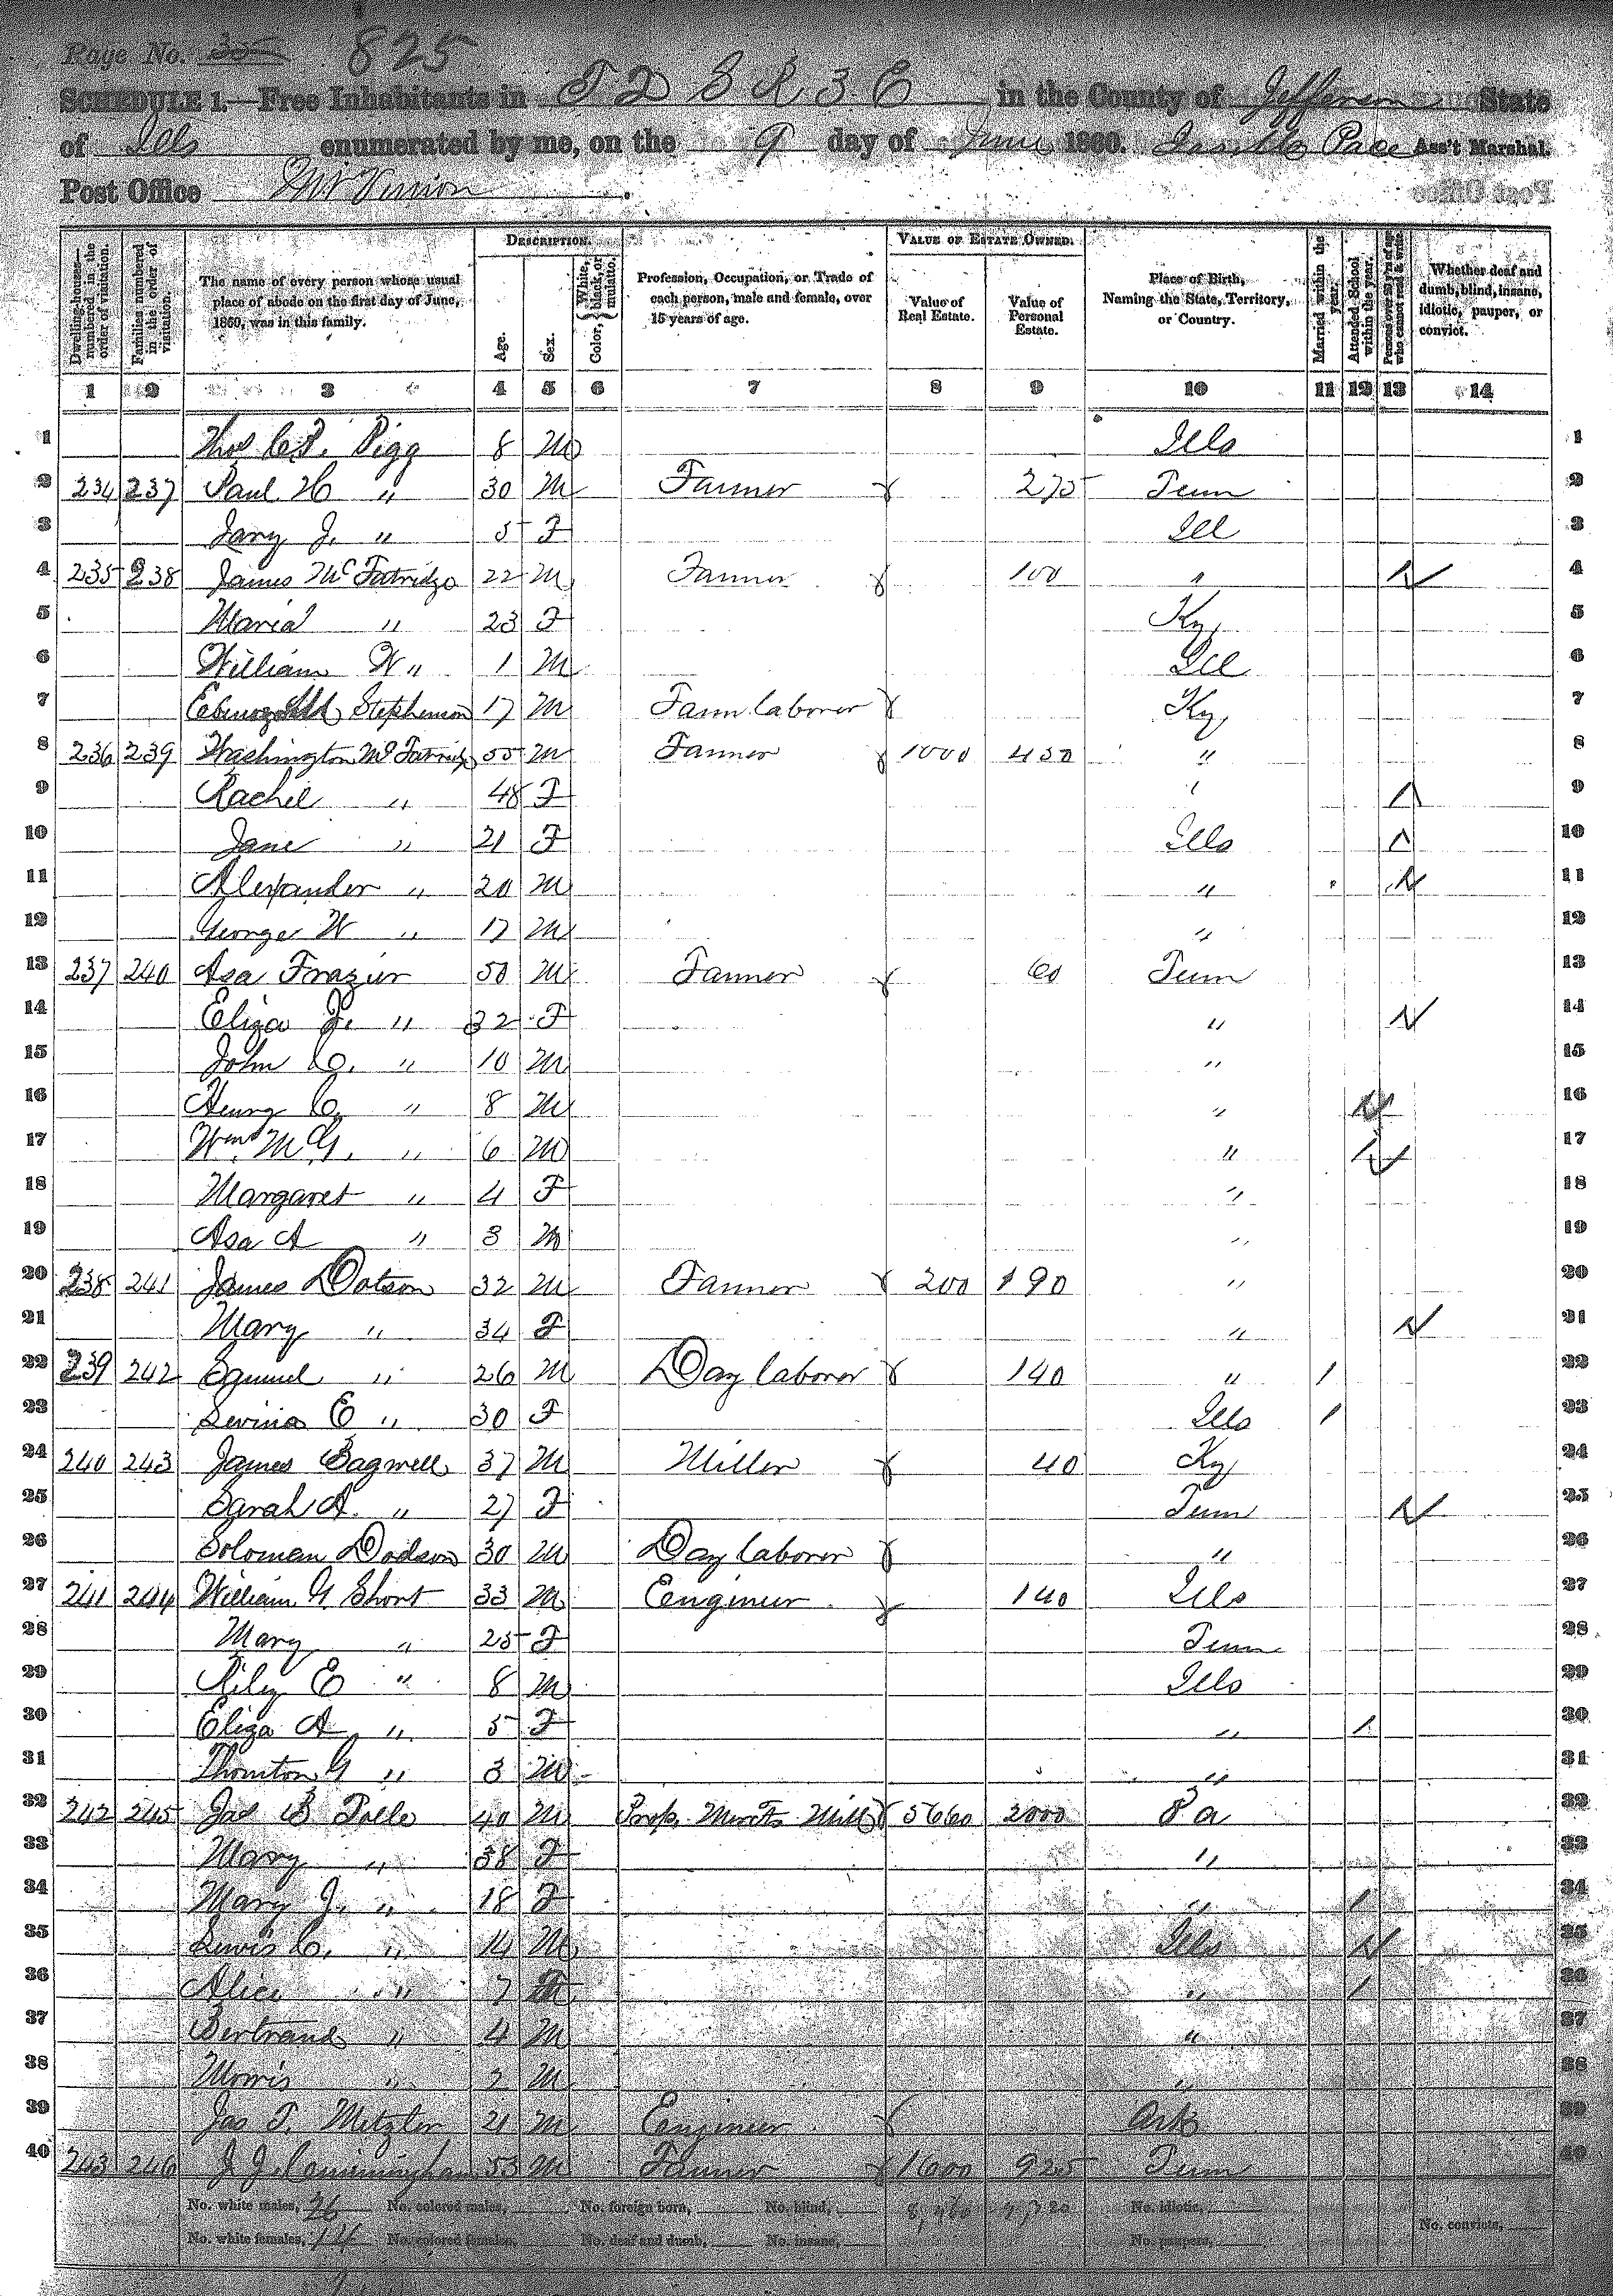 Page No. 35 825
SCHEDULE 1.—Free Inhabitants in T 2 S R 3 E in the County of Jefferson State
of Ills enumerated by me, on the 9 day of June 1860. Pace Ass't Marshal.
Post Office Mt Vernon.
Dwelling-houses—numbered in the order of visitation. Families numbered in the order of visitation. The name of every person whose usual place of abode on the first day of June, 1860, was in this family. DESCRIPTION. Age. Sex. Color, White, black, or mulatto. Profession, Occupation, or Trade of each person, male and female, over 15 years of age. VALUE OF ESTATE OWNED. Value of Real Estate. Value of Personal Estate. Place of Birth, Naming the State, Territory, or Country. Married within the year. Attended School within the year. Persons over 20 y'rs of age who cannot read & write. Whether deaf and dumb, blind, insane, idiotic, pauper, or convict.
1 2 3 4 5 6 7 8 9 10 11 12 13 14
1 Thos C. P. Pigg 8 M Ills 1
2 234 237 Paul H " 30 M Farmer 275 Tenn 2
3 Jary J. " 5 F Ill 3
4 235 238 James McFatridge 22 M Farmer 100 " / 4
5 Maria " 23 F Ky 5
6 William W " 1 M Ill 6
7 Stephenson 17 M Farm laborer Ky 7
8 236 239 Washington McFatridge 55 M Farmer 1000 450 " 8
9 Rachel " 48 F " / 9
10 Jane " 21 F Ills / 10
11 Alexander " 20 M " / 11
12 George W " 17 M " 12
13 237 240 Asa Frazier 50 M Farmer 60 Tenn 13
14 Eliza J. " 32 F " / 14
15 John C. " 10 M " 15
16 Henry C. " 8 M " / 16
17 Wm McG. " 6 M " / 17
18 Margaret " 4 F " 18
19 Asa A " 3 M " 19
20 238 241 James Dotson 32 M Farmer 200 190 " 20
21 Mary " 34 F " / 21
22 239 242 Samuel " 26 M Day laborer 140 " / 22
23 Levina E " 30 F Ills / 23
24 240 243 James Bagwell 37 M Miller 40 Ky 24
25 Sarah A. " 27 F Tenn / 25
26 Soloman Dodson 30 M Day laborer " 26
27 241 244 William G Short 33 M Eengineer 140 Ills 27
28 Mary " 25 F Tenn 28
29 Riley E " 8 M Ills 29
30 Eliza A " 5 F " / 30
31 Thornton G " 3 M " 31
32 242 245 Jas B Tolle 40 M Prop. Merch Mill 5660 2000 Pa 32
33 Mary " 38 F " 33
34 Mary J. " 18 F " / 34
35 Lewis C. " 14 M Ills / 35
36 Alice " 7 F " / 36
37 Bertrand " 4 M " 37
38 Morris " 2 M " 38
39 Jas T. Metzler 21 M Eengineer Ark 39
40 243 246 J J. Cunningham 53 M Farmer 1600 925 Tenn 40
No. white males, 26 No. colored males, No. foreign born, No. blind, No. idiotic,
No. white females, 14 No. colored females, No. deaf and dumb, No. insane, No. paupers, No. convicts,